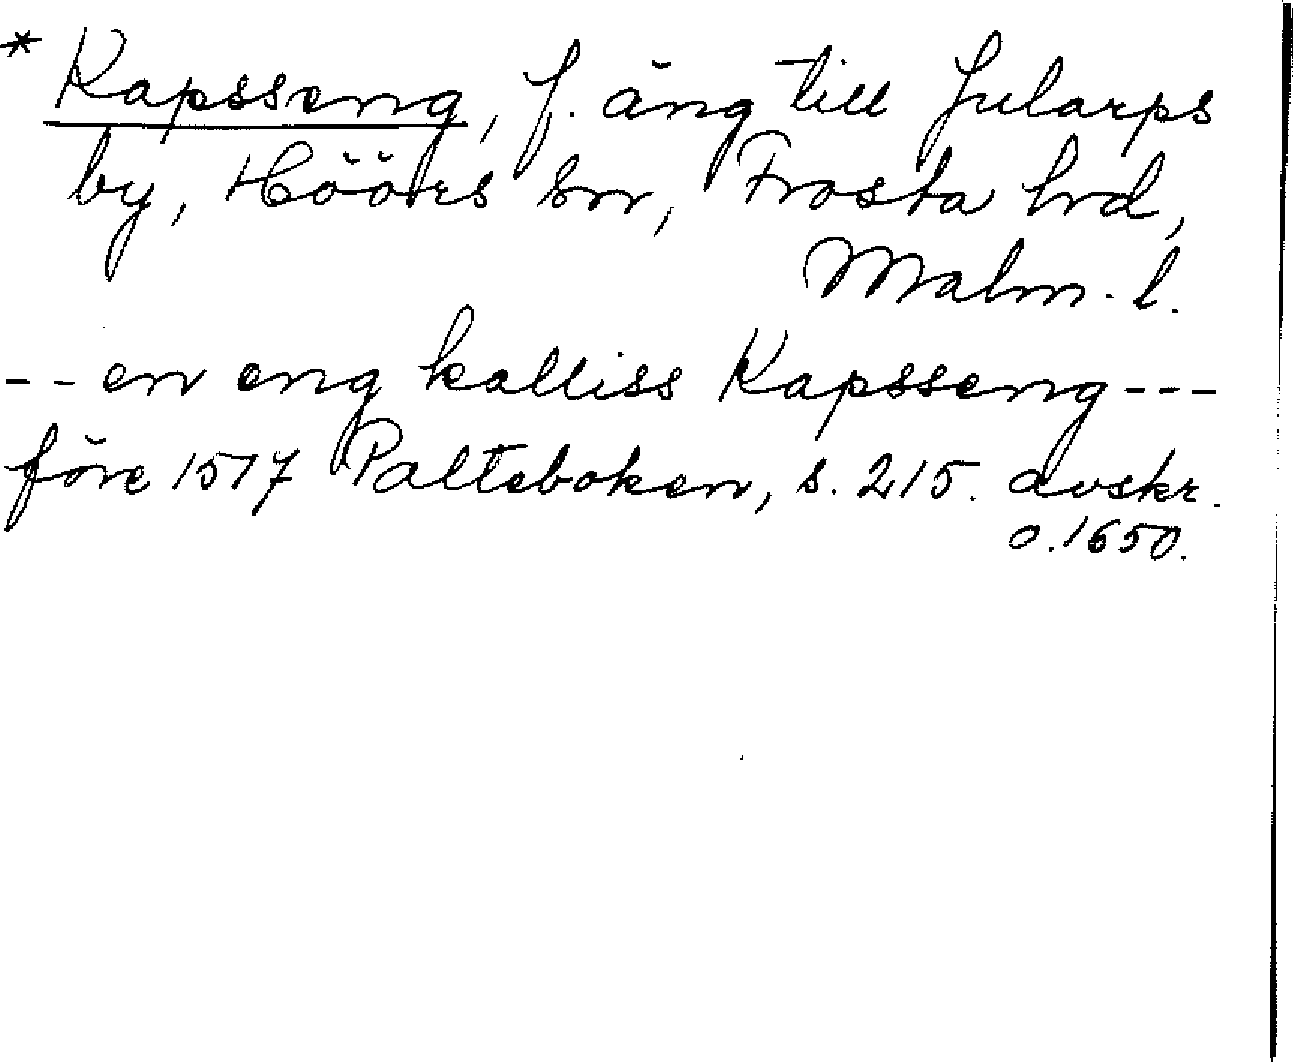 * Kapsseng, f. äng till Jularps
by, Höörs sn, Frosta hrd,
Malm. l.
-- en eng kalliss Kapsseng ---
före 1517 Palteboken, s. 215. avskr.
o. 1650.